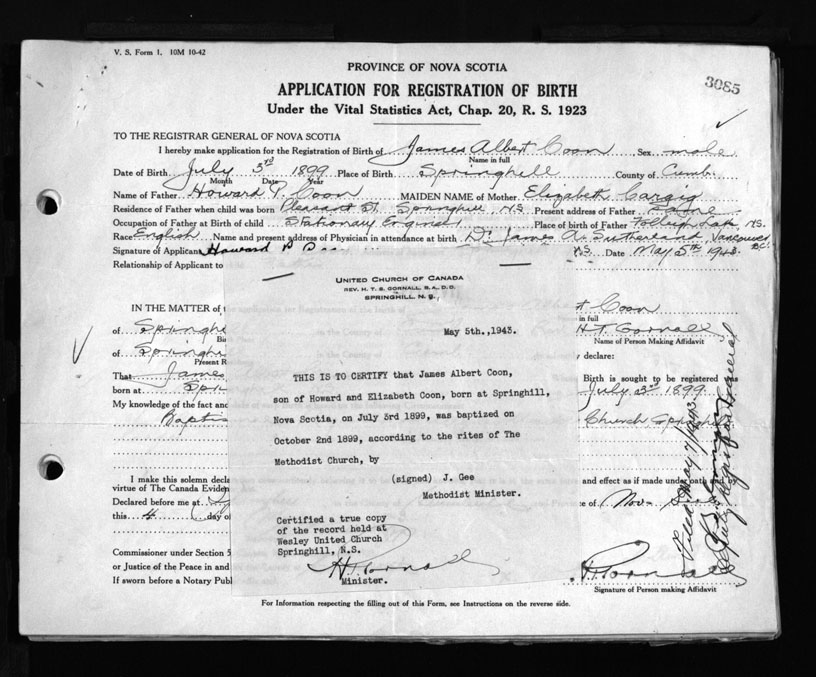 V. S. Form 1. 10M 10-42
3085
PROVINCE OF NOVA SCOTIA
APPLICATION FOR REGISTRATION OF BIRTH
Under the Vital Statistics Act, Chap. 20, R. S. 1923
TO THE REGISTRAR GENERAL OF NOVA SCOTIA
I hereby make application for the Registration of Birth of James Albert Coon Sex male
Name in full
Date of Birth July 3rd 1899 Place of Birth Springhill County of Cumb.
Month Date Year
Name of Father Howard P. Coon MAIDEN NAME of Mother Elizabeth
Residence of Father when child was born Pleasant St. Springhill N.S. Present address of Father
Occupation of Father at Birth of child Stationary Engineer Place of birth of Father Folleigh Lake N.S.
Race English Name and present address of Physician in attendance at birth Dr. James A. Sutherland, Vancouver B.C.
Signature of Applicant Howard P N.S. Date May 5th 1943
Relationship of Applicant to
UNITED CHURCH OF CANADA
REV. H. T. S. GORNALL, B.A., D.D.
SPRINGHILL, N. S.
May 5th.,1943.
THIS IS TO CERTIFY that James Albert Coon,
son of Howard and Elizabeth Coon, born at Springhill,
Nova Scotia, on July 3rd 1899, was baptized on
October 2nd 1899, according to the rites of The
Methodist Church, by
(signed) J. Gee
Methodist Minister.
Certified a true copy
of the record held at
Wesley United Church
Springhill, N.S.
Minister.
IN THE MATTER of
Coon
in full
of Springhi
Name of Person Making Affidavit
of Springhi
Present R
declare:
That James
Birth is sought to be registered was
born at Spr
July 3rd 1899
My knowledge of the fact and
Baptis
Church Springhill
I make this solemn decla
and effect as if made under oath and by
virtue of The Canada Eviden
Declared before me at
ce of Nova
this 4 day o
Filed May 7/1943
Registrar General
Commissioner under Section 5
or Justice of the Peace in and
If sworn before a Notary Publ
Signature of Person making Affidavit
For Information respecting the filling out of this Form, see Instructions on the reverse side.